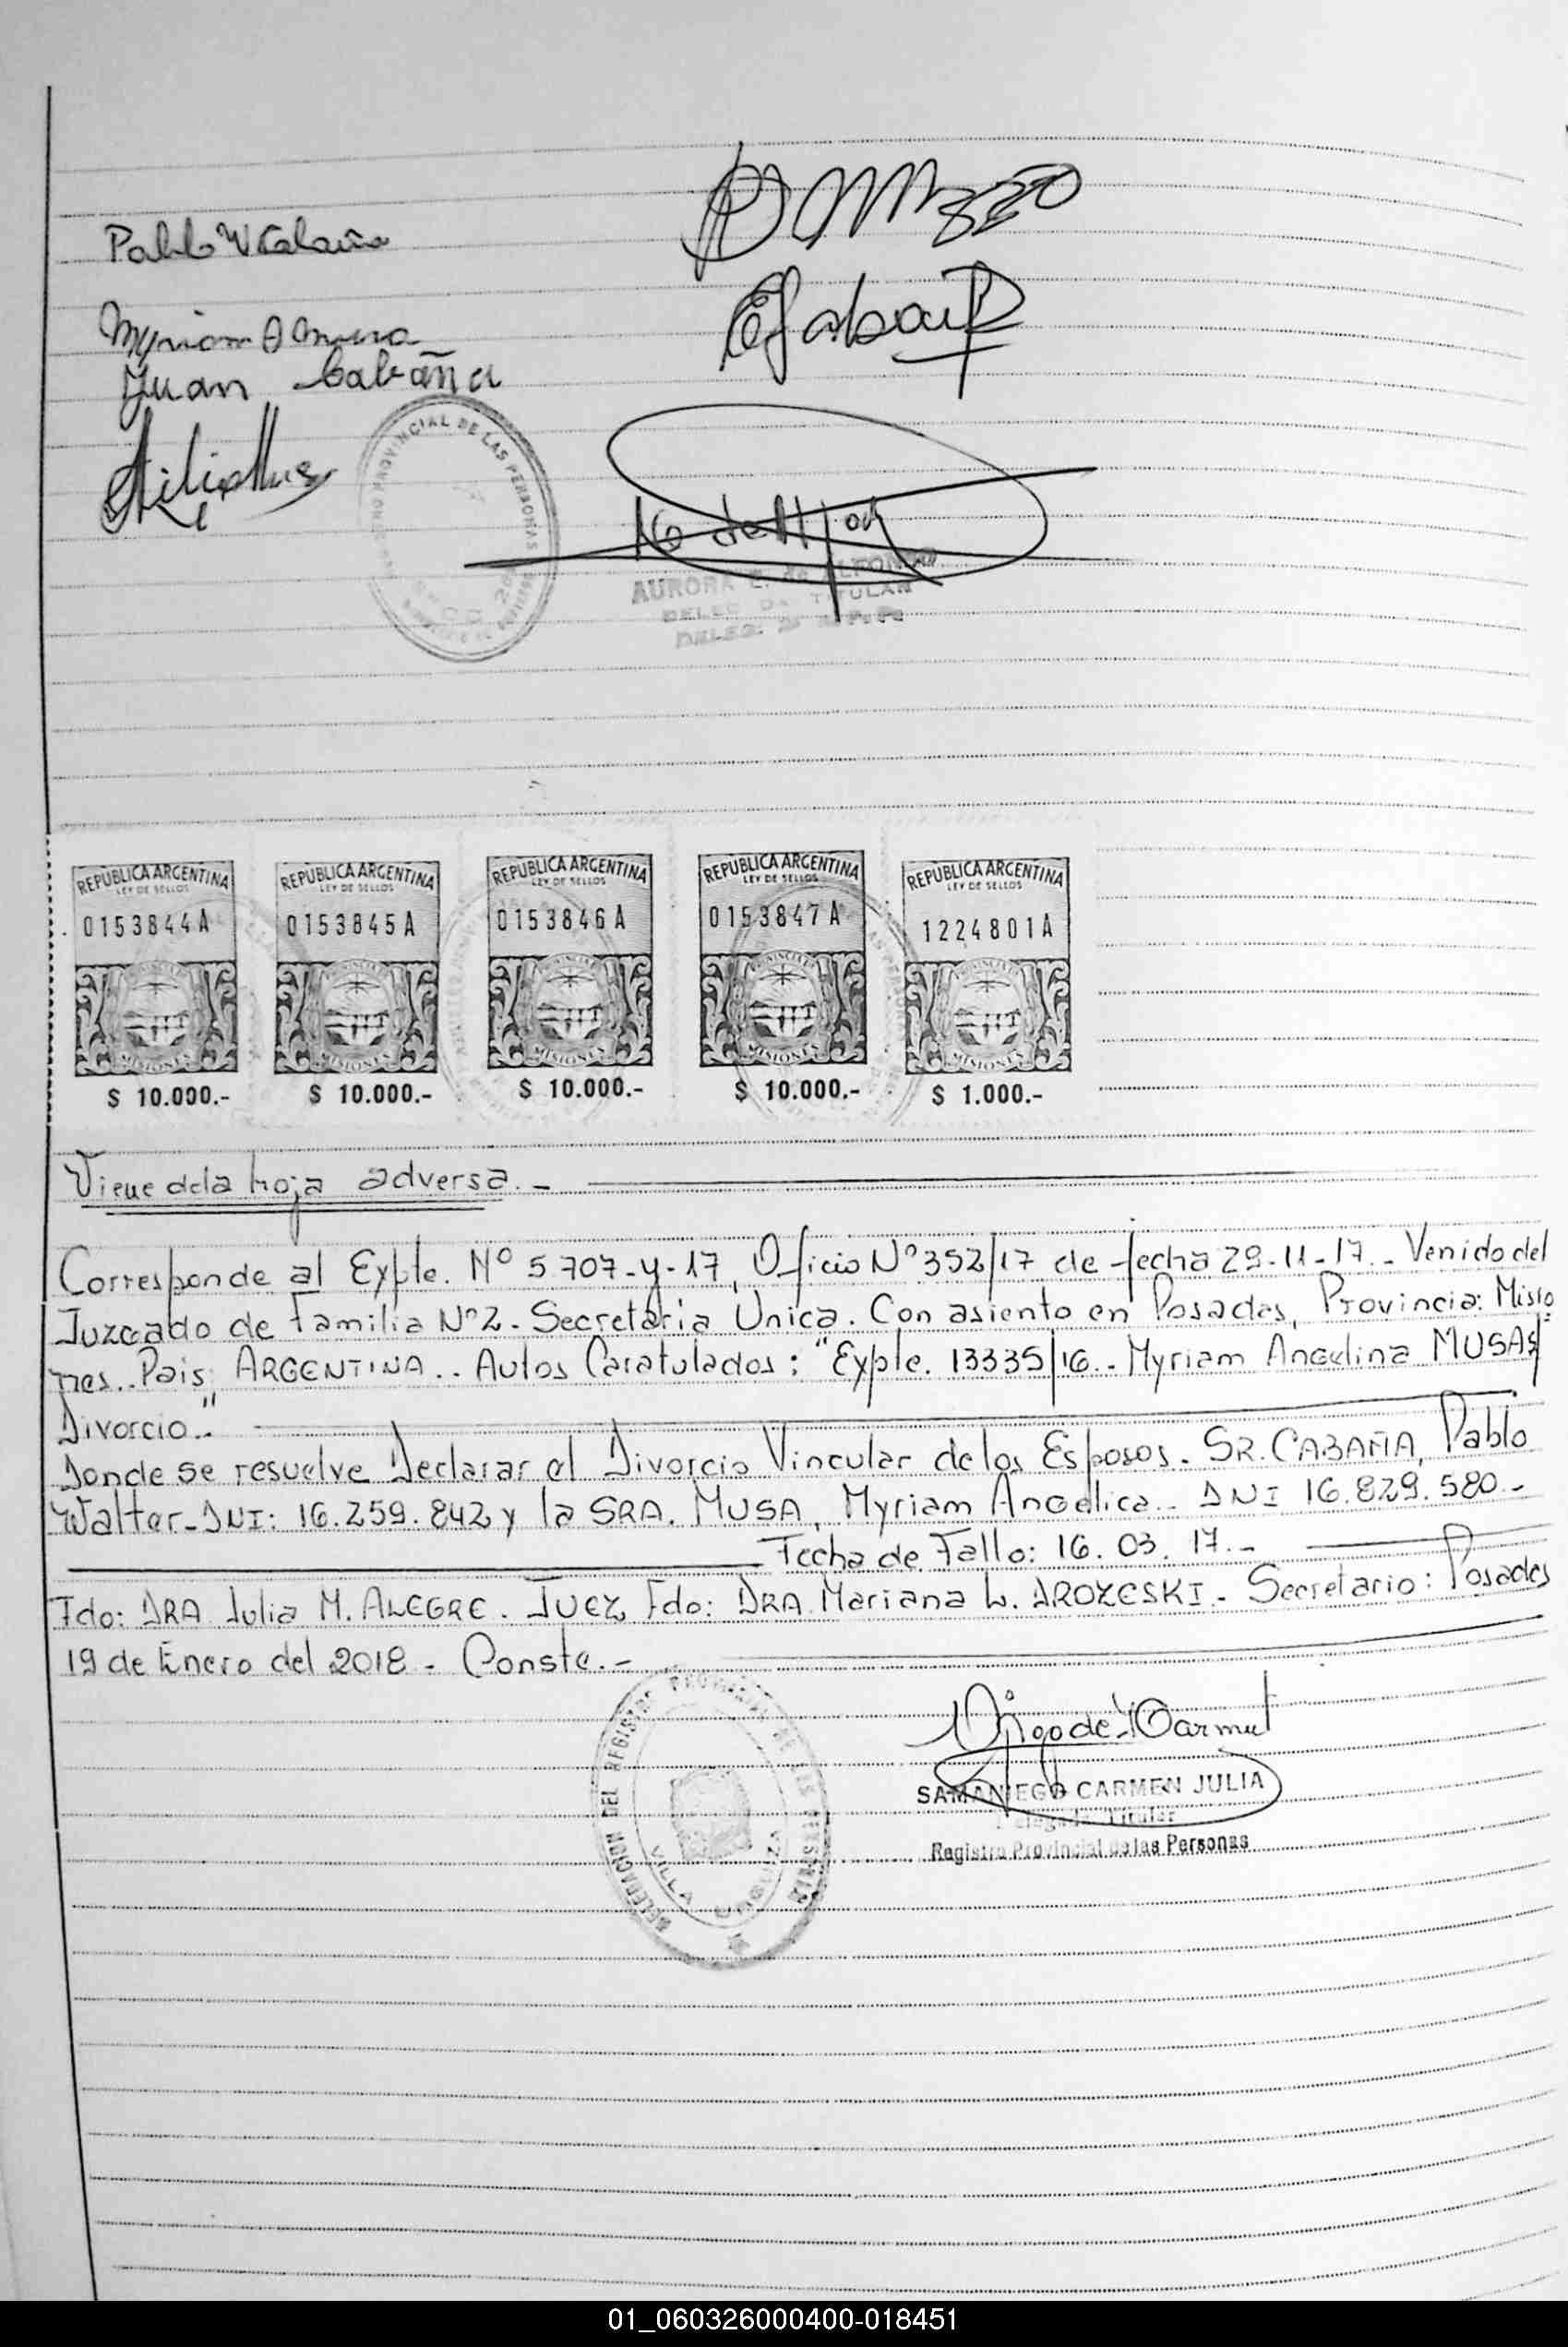 Pablo W Cabaña
Myriam A Musa
Juan Cabaña
REGISTRO PROVINCIAL DE LAS PERSONAS
AURORA E. de ALFONSO
TITULAR
REPUBLICA ARGENTINA
LEY DE SELLOS
0153844A
MISIONES
$ 10.000.-
REPUBLICA ARGENTINA
LEY DE SELLOS
0153845A
MISIONES
$ 10.000.-
REPUBLICA ARGENTINA
LEY DE SELLOS
0153846A
MISIONES
$ 10.000.-
REPUBLICA ARGENTINA
LEY DE SELLOS
0153847A
MISIONES
$ 10.000.-
REPUBLICA ARGENTINA
LEY DE SELLOS
1224801A
MISIONES
$ 1.000.-
Viene dela hoja adversa.-
Corresponde al Expte. Nº 5.707-Y-17, Oficio Nº352/17 de fecha 29-11-17.- Venido del
Juzgado de Familia Nº2.- Secretaria Única. Con asiento en Posadas, Provincia: Misio
nes.. Pais: ARGENTINA.. Autos Caratulados: "Expte. 13335/16.- Myriam Angelina MUSA s/
Divorcio.."
Donde se resuelve Declarar el Divorcio Vincular de los Esposos. SR. CABAÑA, Pablo
Walter-DNI: 16.259.842 y la SRA. MUSA, Myriam Angélica.. DNI 16.829.580.-
Fecha de Fallo: 16.03.17.-
Fdo: DRA Julia M. ALEGRE. JUEZ Fdo: DRA. Mariana L. DROZESKI.- Secretario: Posadas
19 de Enero del 2018 - Conste.-
DELEGACION DEL REGISTRO PROVINCIAL DE LAS PERSONAS
VILLA URQUIZA
SAMANIEGO CARMEN JULIA
Delegada Titular
Registro Provincial de las Personas
01_060326000400-018451